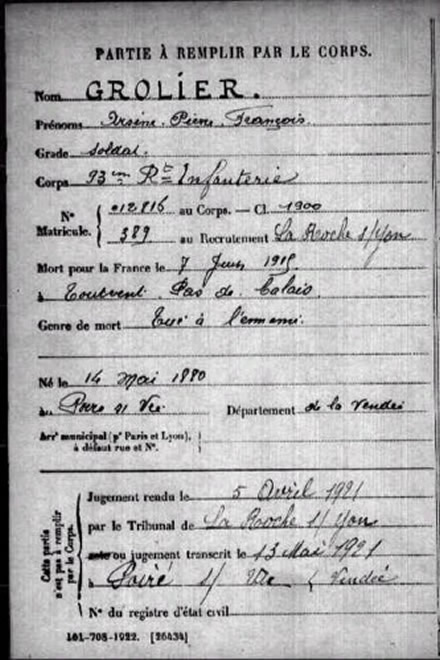 PARTIE À REMPLIR PAR LE CORPS.
Nom GROLIER.
Prénoms Arsène Pierre François
Grade soldat.
Corps 93me Rt Infanterie
N° Matricule. { 012816 au Corps. — Cl. 1900
389 au Recrutement La Roche s/Yon
Mort pour la France le 7 Juin 1915
à Toutvent Pas de Calais
Genre de mort Tué à l'ennemi.
Né le 14 mai 1880
à Poiré s/ Vie Département de la Vendée
Arrt municipal (pr Paris et Lyon), à défaut rue et N°.
Cette partie n'est pas à remplir par le Corps.
Jugement rendu le 5 Avril 1921
par le Tribunal de La Roche s/ Yon
acte ou jugement transcrit le 13 Mai 1921
à Poiré s/ Vie (Vendée
N° du registre d'état civil
101-708-1922. [26434]